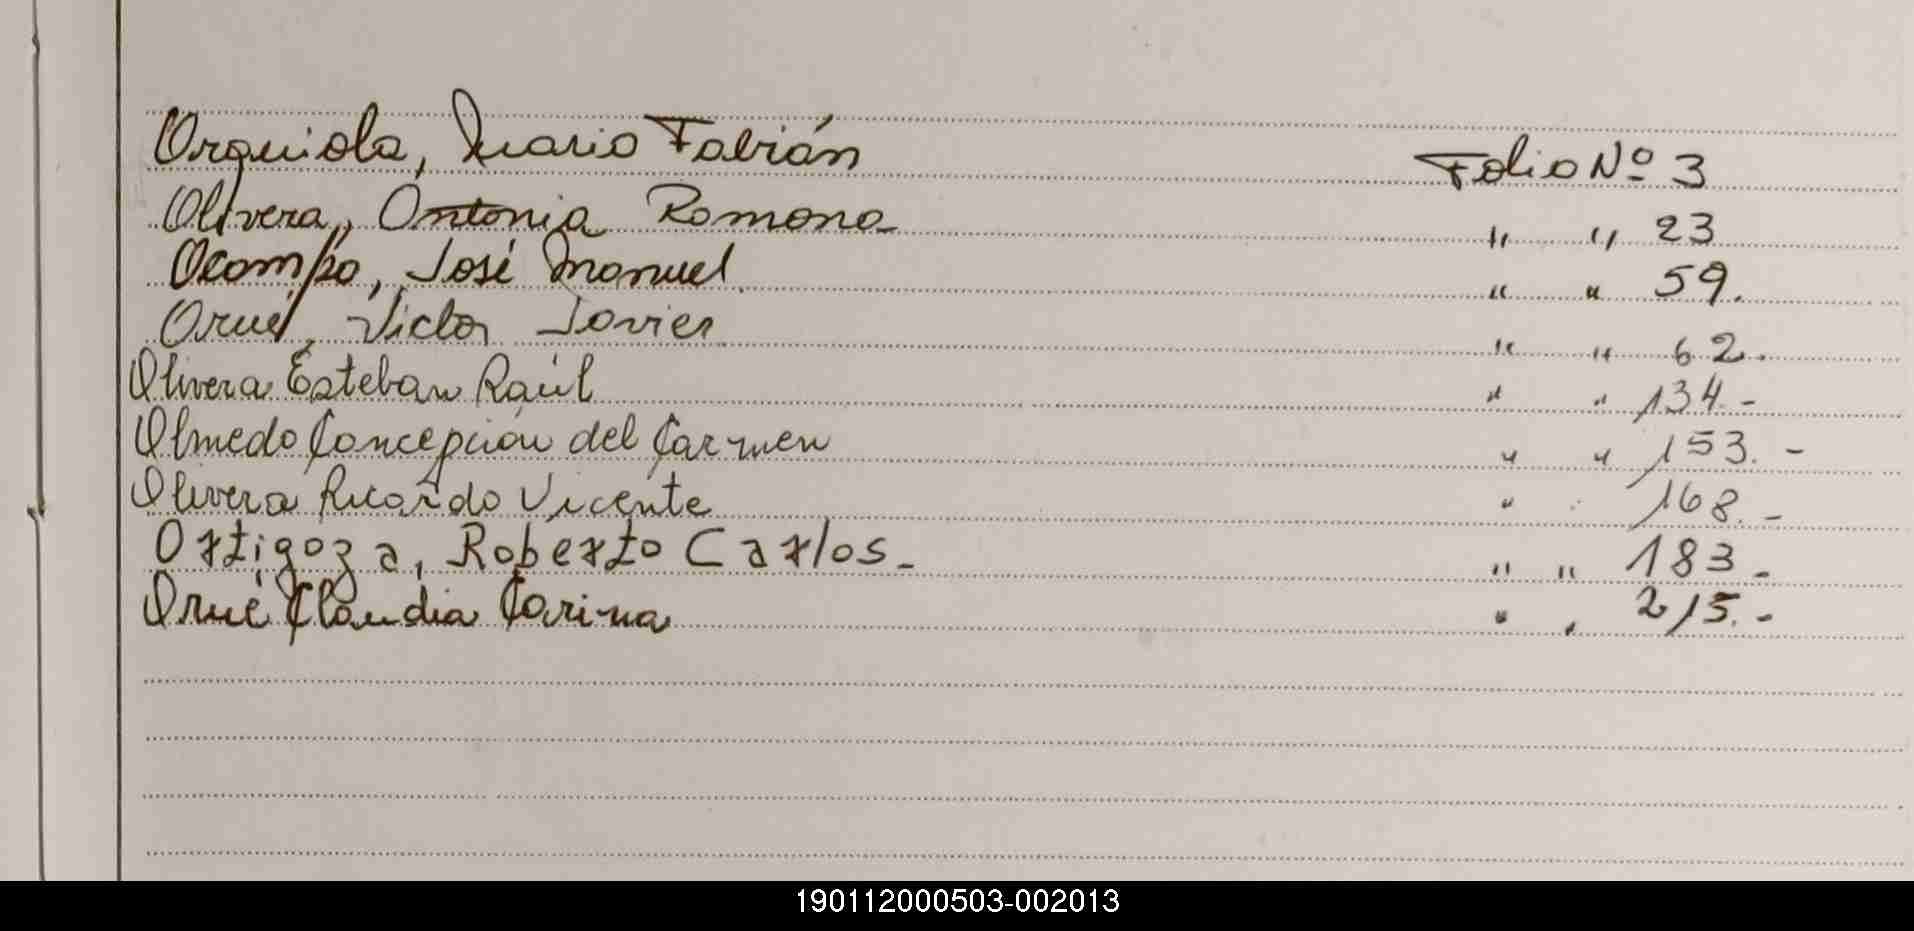 Orquiola, Mario Fabián Folio Nº 3
Olivera, Antonia Ramona " " 23
Ocampo, José Manuel " " 59.
Orué, Victor Javier " " 62.
Olivera Esteban Raúl " " 134.-
Olmedo Concepción del Carmen " " 153.-
Olivera Ricardo Vicente " " 168.-
Ortigoza, Roberto Carlos.- " " 183-
Orué Claudia Carina " " 215.-
190112000503-002013